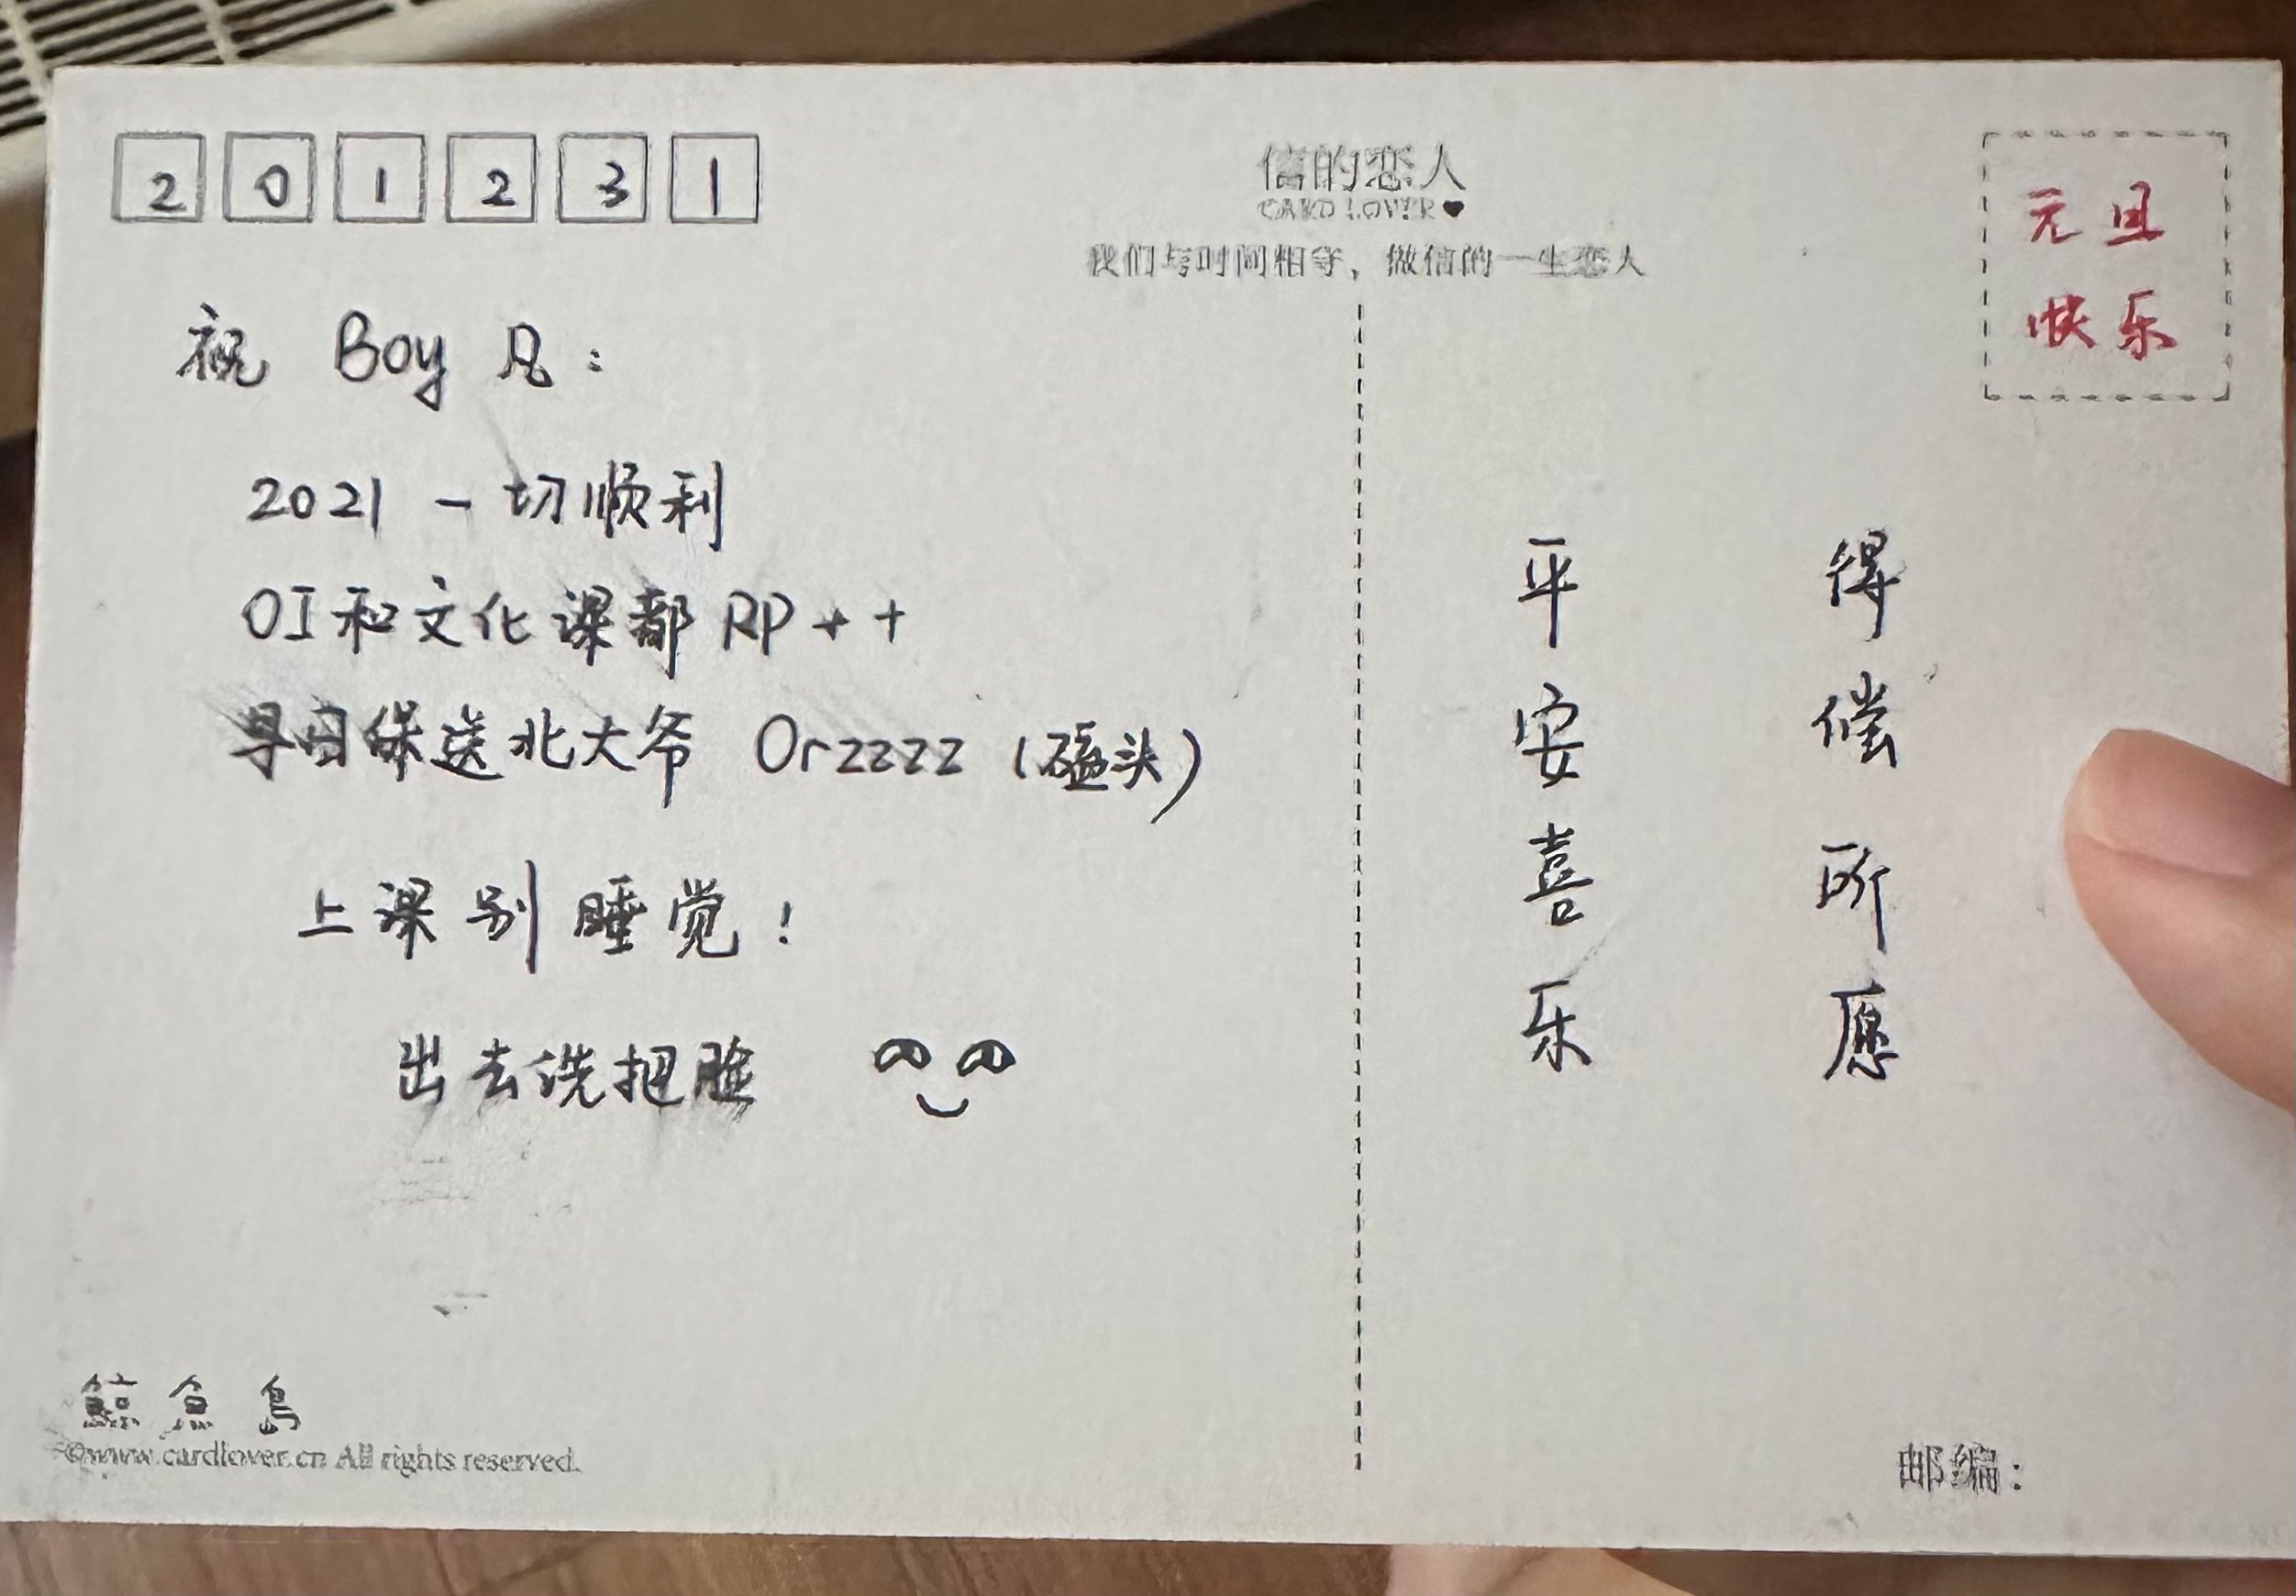 201231
信的恋人
CARD LOVER
我们与时间相等，做信的一生恋人
元旦
快乐
祝 Boy 凡：
2021 一切顺利
OI和文化课都 RP++
早日保送北大爷 Orzzzz（磕头）
上课别睡觉！
出去洗把脸
得偿所愿
平安喜乐
鲸鱼島
©www.cardlover.cn All rights reserved.
邮编：